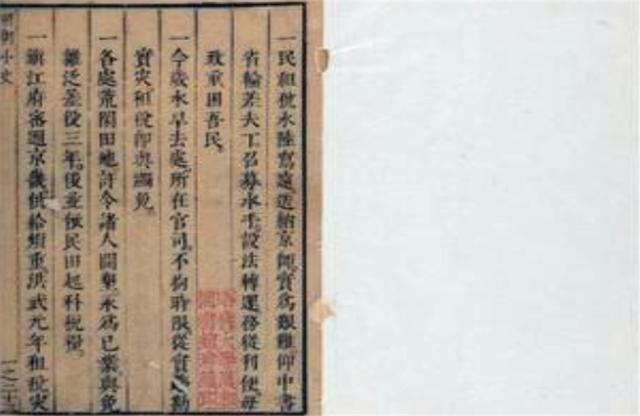 一民租稅水陸寫遠送納京師實為艱難仰中書
省輪差夫丁召募水手設法轉運務從利便毋
致重困吾民
一今歲水旱去處所在官司不拘時限從實踏勘
實灾租稅即與蠲免
一各處荒閑田地許令諸人開墾永為已業與免
雜泛差役三年後並依民田起科稅糧
一鎮江府密邇京畿供給煩重洪武元年租稅灾
明朝小史
一之二十